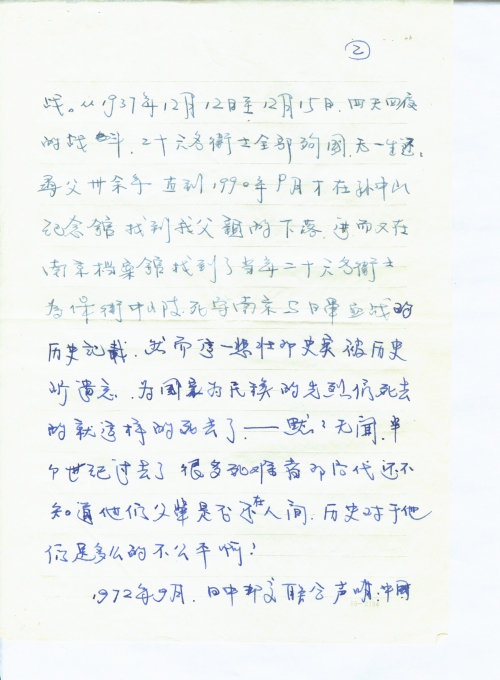 ②
战。从1937年12月12日至12月15日,四天四夜
的战斗,二十六名衛士全部殉國,无一生还。
尋父卅余年 直到1990年9月才在孙中山
纪念館找到我父親的下落,進而又在
南京档案館找到了当年二十六名衛士
为保衛中山陵死守南京与日軍血战的
历史記載,然而這一悲壮的史实被历史
所遺忘,为國家为民族的先烈们死去
的就这样的死去了,——默々无闻,半
个世纪过去了很多死难者的后代还不
知道他们父輩是否还在人间,历史对于他
们是多么的不公平啊!
1972年9月,日中邦交联合声明:中國